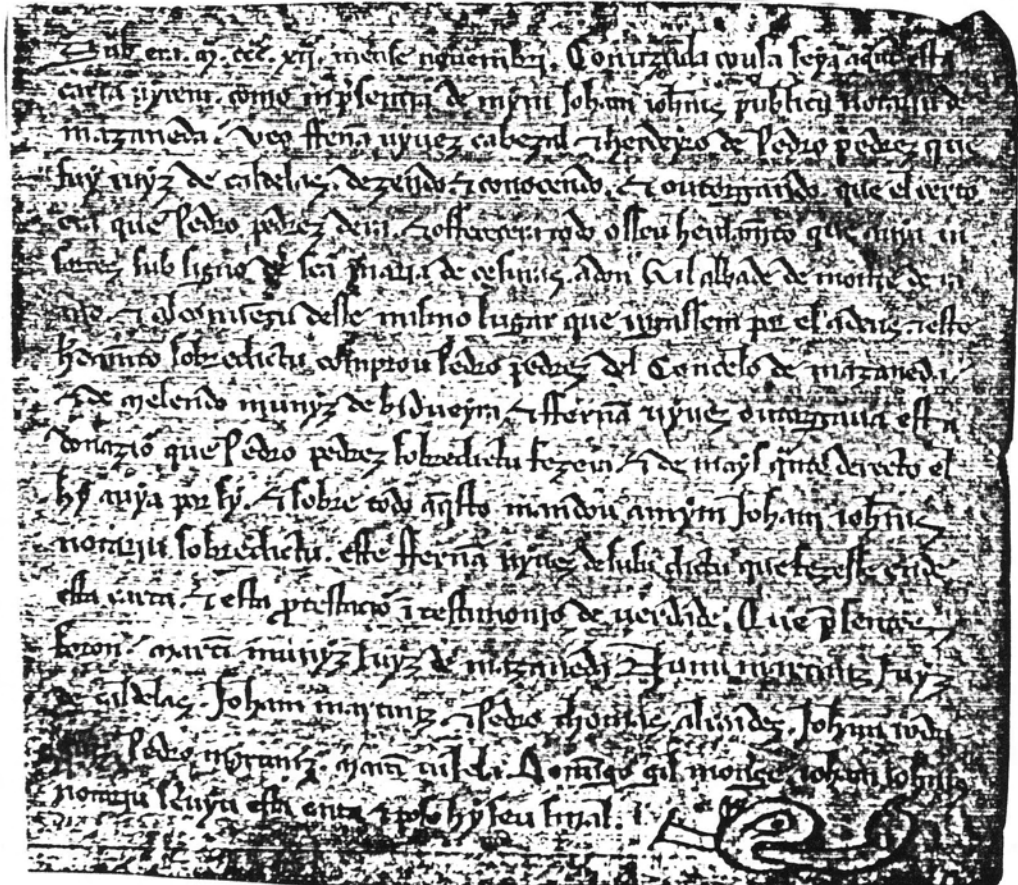 Sub era. M. ccc. xii. mense nouembri. Conuzuda cousa seya aque esta
carta uyrem. como in presencia de myn Johan iohnis publicu notariu de
mazaneda. ueo ffernã uyuez cabezal & herdeyro de Pedro pedrez que
fuy iuyz de caldelas. dezendo & conocendo. & outorgando. que el certo
era que Pedro pedrez dera & offerecera todo o seu herdamẽto que auya
sub signo de scã Maria de cesuris. a don Gil abade de monte de
& al conuentu desse mismo lugar que rogassem por el a deus. & esto
herdamẽto sobredictu comprou Pedro pedrez del Concelo de mazaneda.
& de Melendo munyz de bidueyra & ffernã uyuez outorgaua esta
donazio que Pedro pedrez sobredictu fezera & de mays quãto derecto el
hy auya por sy. & sobre todo aqsto mandou a myn Johan iohnis
notariu sobredictu. este ffernã uyuez de subu dictu que fezesse ende
esta carta. & esta protestacio i testimonio de uerdade. Que presentes
foron. Martĩ munyz Juyz de mazaneda Nunu martinz Juyz
de caldelas. Johan martinz. & Pedro thomas alcaides. Johan
Pedro martinz. Martĩ Domĩgo gil monge. iohan iohnis
notariu scriuyu esta carta & poso hy seu sinal.